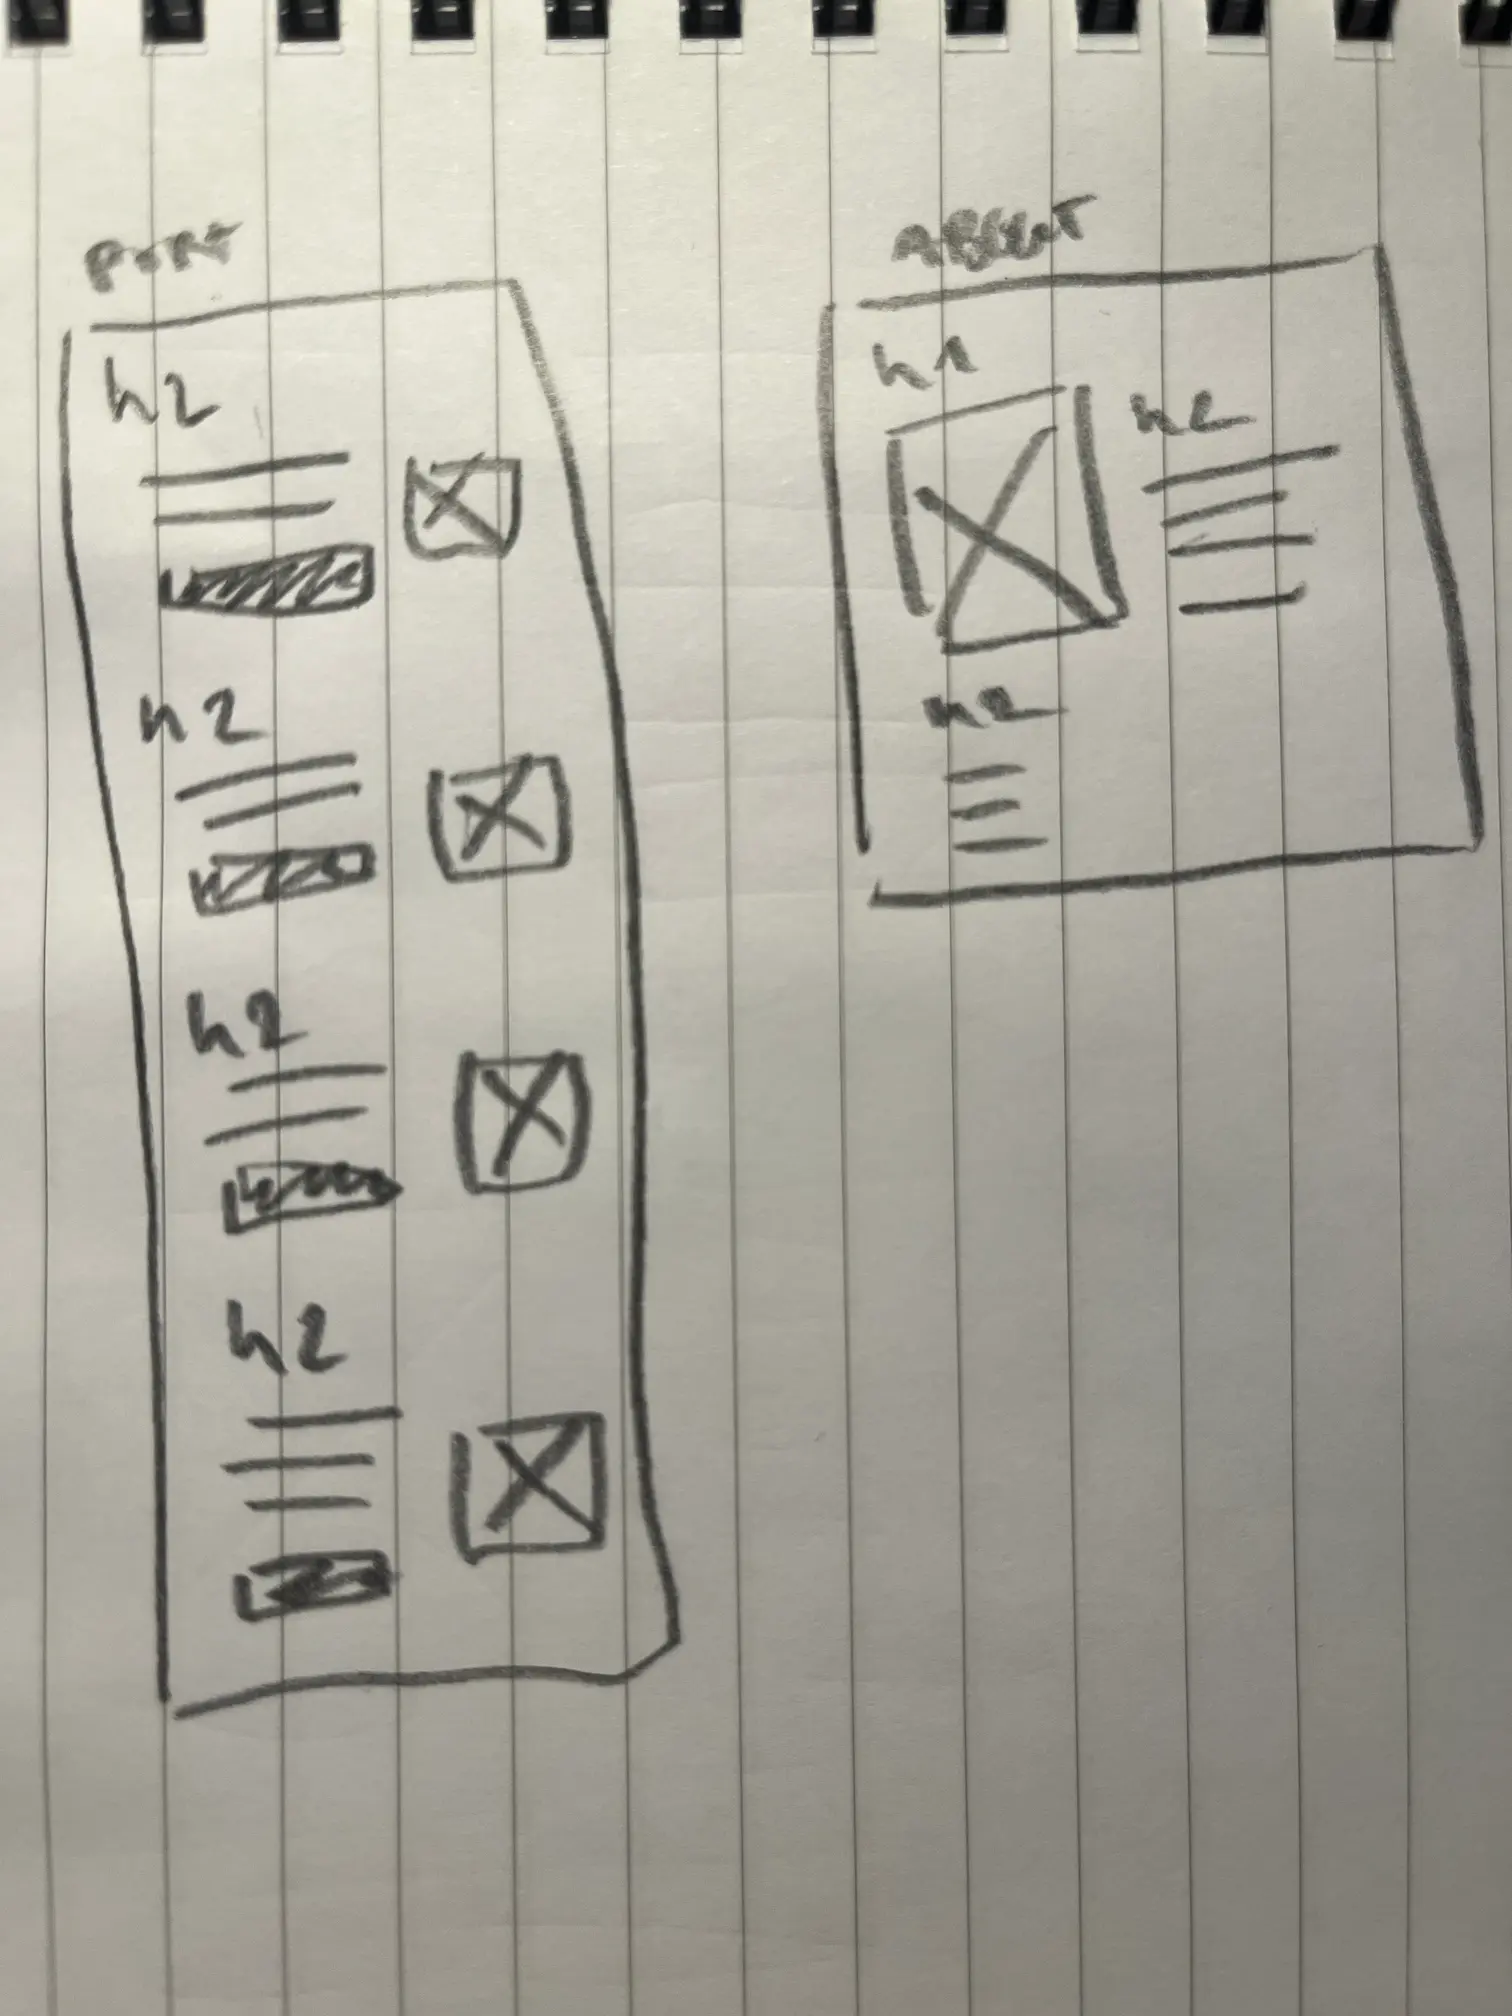 PORT
h2
h2
h2
h2
ABOUT
h1
h2
h2